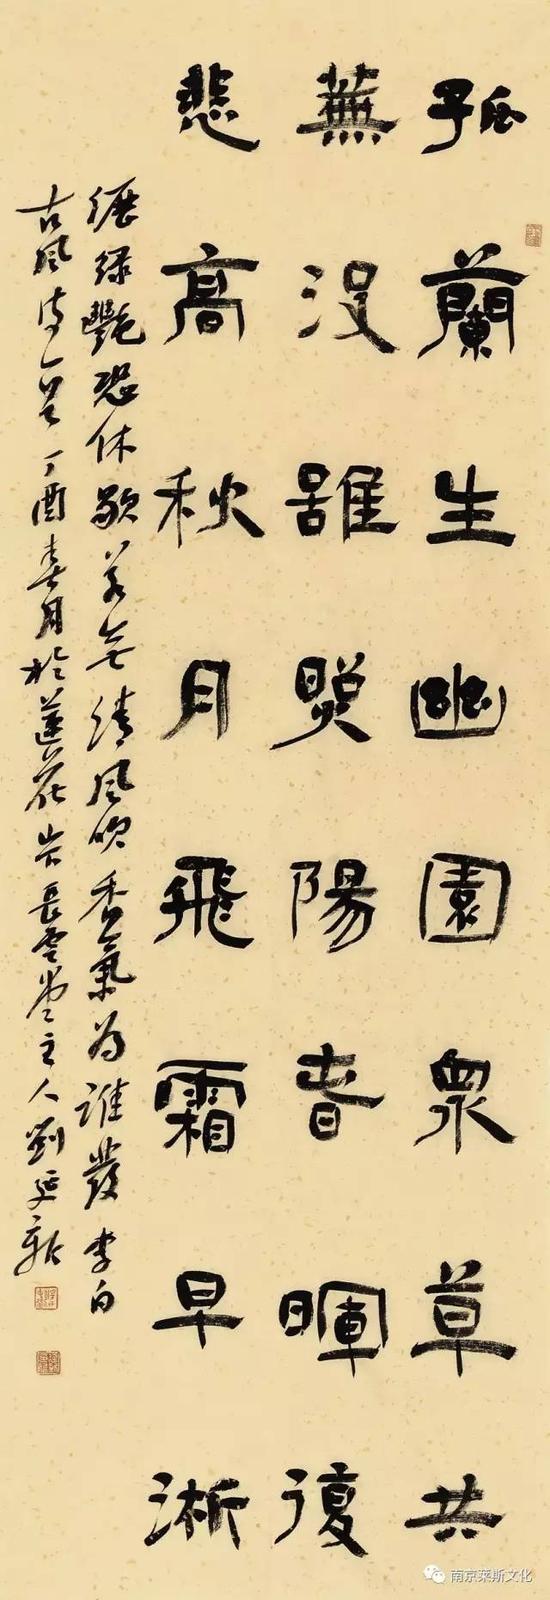 孤蘭生幽園眾草共
蕪没雖照陽春暉復
悲高秋月飛霜早淅
瀝綠艷恐休歇若無清風吹香氣為誰發李白
古風詩一首丁酉春月於蓮花岩長雲堂主人劉延龍
南京莱斯文化